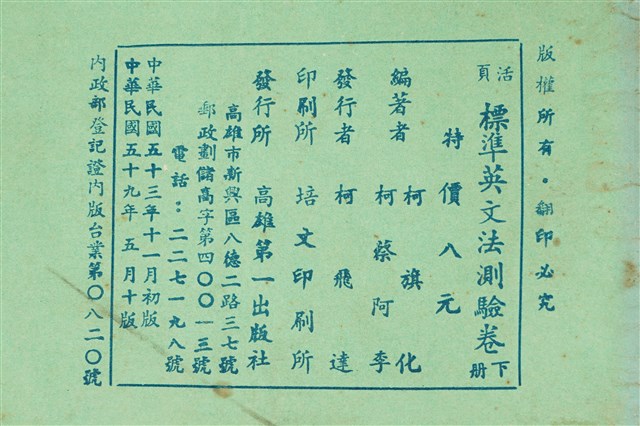 版權所有・翻印必究
活頁 標準英文法測驗卷 下册
特價八元
編著者 柯旗化
柯蔡阿李
發行者 柯飛達
印刷所 培文印刷所
發行所 高雄第一出版社
高雄市新興區八德二路三七號
郵政劃儲高字第四〇〇一三號
電話：二二七一九八號
中華民國五十三年十一月初版
中華民國五十九年五月十版
內政部登記證內版台業第〇八二〇號